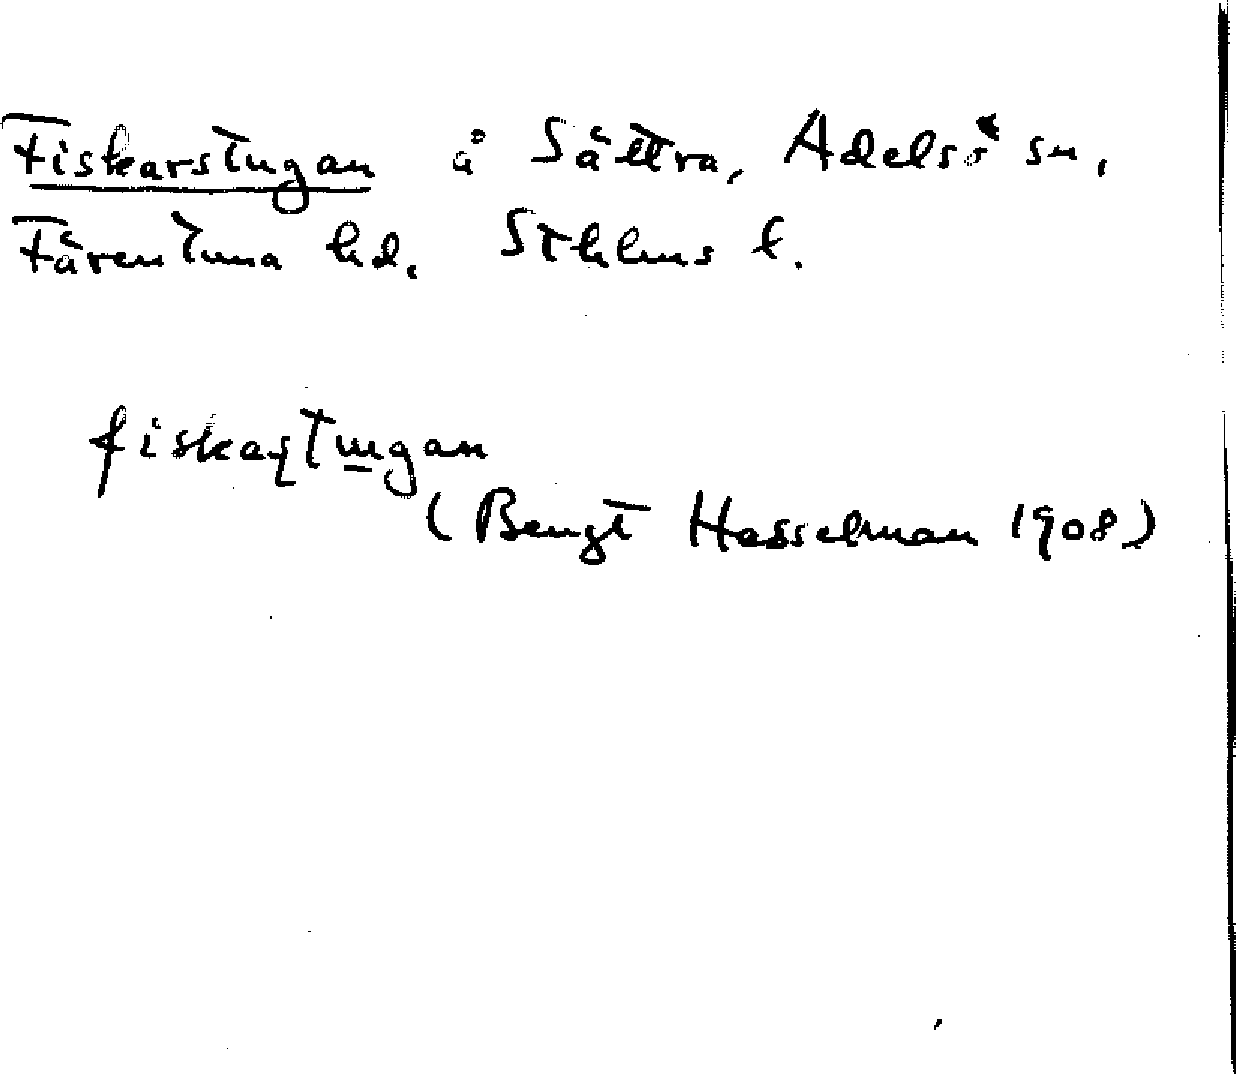 Fiskarstugan å Sättra, Adelsö sn,
Färentuna hd. Sthlms l.
fiskaʂtugan
(Bengt Hesselman 1908)